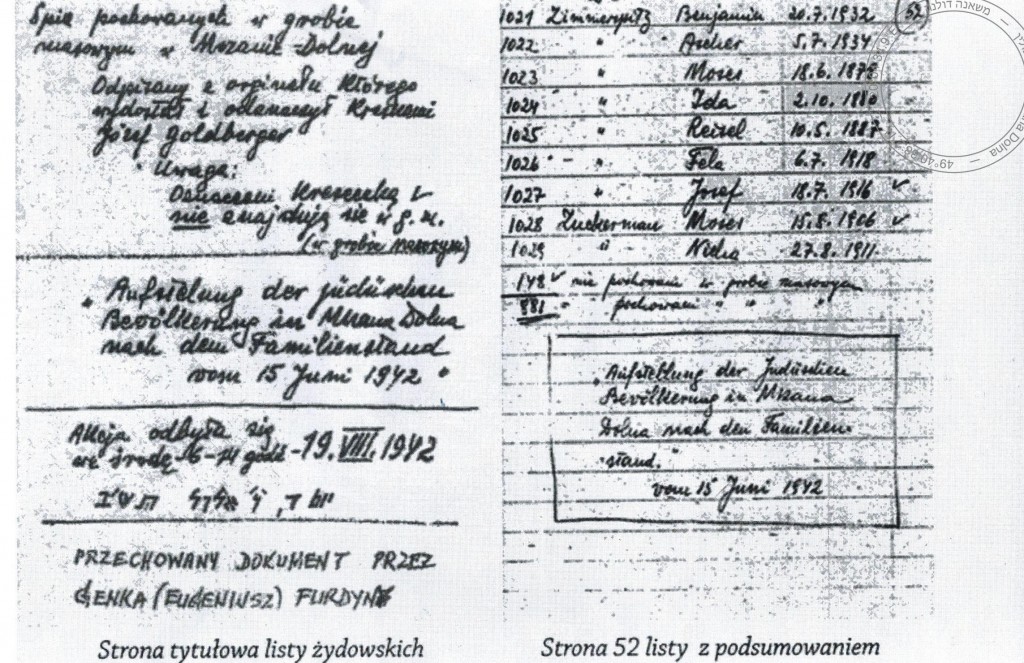 Spis pochowanych w grobie
masowym w Mszanie-Dolnej
Odpisany z orginału którego
wydostał i odznaczył kreskami
Józef Goldberger
Uwaga:
Oznaczeni kreseczką ✓
nie znajdują się w g. m.
(w grobie masowym)
„Aufstelung der jüdischen
Bevölkerung in Mszana Dolna
nach dem Familienstand
vom 15 Juni 1942"
Akcja odbyła się
we środę - 19. VIII. 1942
PRZECHOWANY DOKUMENT PRZEZ
GENKA (EUGENIUSZ) FURDYNY
Strona tytułowa listy żydowskich
52
1021 Zimmerspitz Benjamin 20.7.1932
1022 " Ascher 5.7.1934
1023 " Moses 18.6.1878
1024 " Ida 2.10.1880
1025 " Reisel 10.5.1887
1026 " Fela 6.7.1918
1027 " Josef 18.7.1916 ✓
1028 Zuckerman Moses 15.8.1906 ✓
1029 " 27.8.1911
148 ✓ nie pochowani w grobie masowym
881 - pochowani " " "
„Aufstellung der Jüdischen
Bevölkerung in Mszana
Dolna nach den Familien-
stand."
vom 15 Juni 1942
Strona 52 listy z podsumowaniem
משאנה דולנה
Dolna — 49°40'26